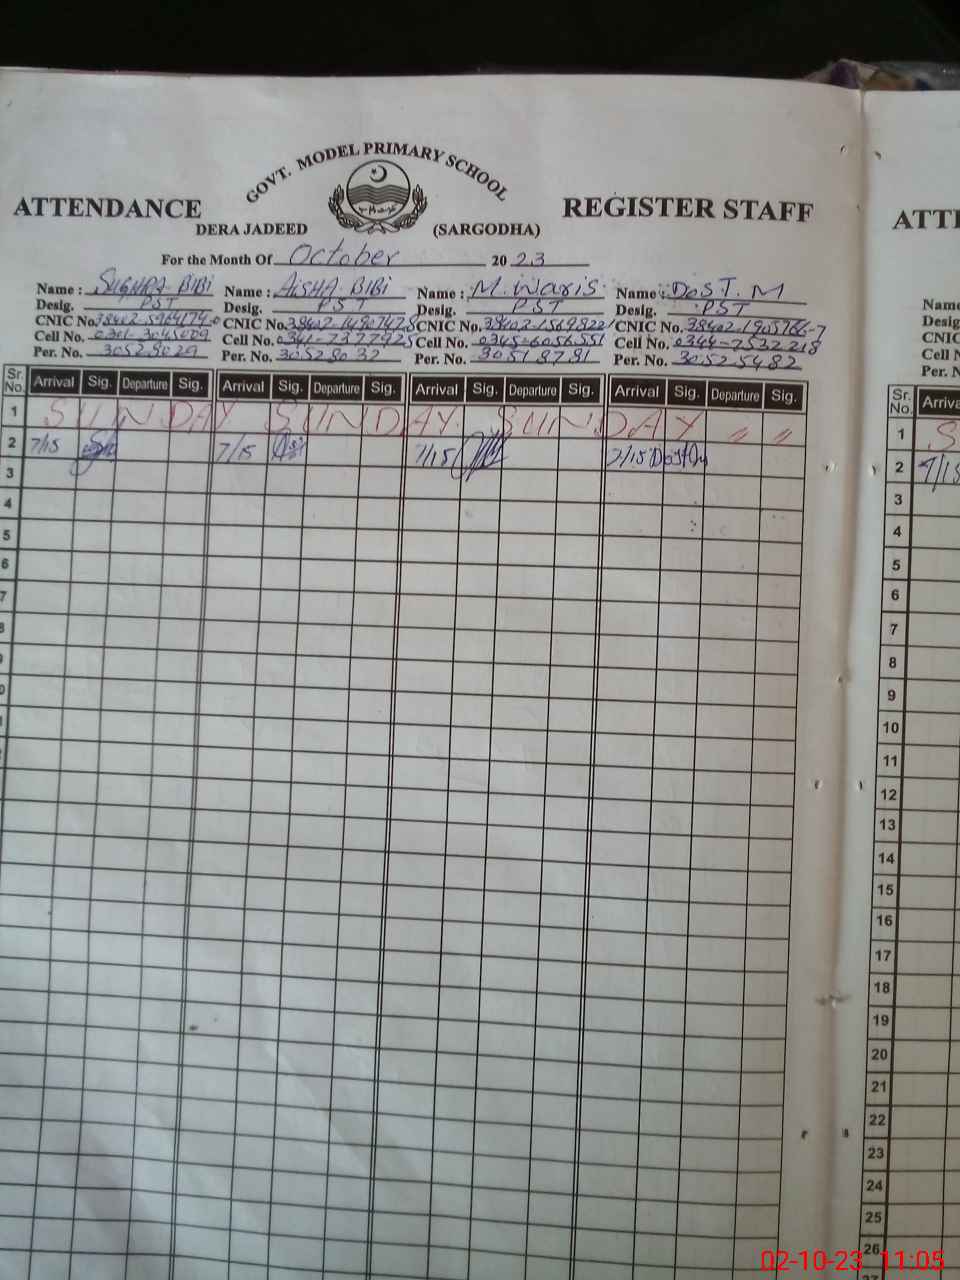 GOVT. MODEL PRIMARY SCHOOL
ATTENDANCE REGISTER STAFF
DERA JADEED (SARGODHA)
For the Month Of October 2023
Name : SUGHRA BIBI Name : AISHA BIBI Name : M. Waris Name : DOST. M
Desig. PST Desig. PST Desig. PST Desig. PST
CNIC No. CNIC No. CNIC No. CNIC No. 38402-1905766-7
Cell No. 0301-3045029 Cell No. 0341-7377925 Cell No. 0345-6056551 Cell No. 0344-7532218
Per. No. 30528029 Per. No. 30528032 Per. No. 30518781 Per. No. 30525482
Sr. No. Arrival Sig. Departure Sig. Arrival Sig. Departure Sig. Arrival Sig. Departure Sig. Arrival Sig. Departure Sig.
1 SUNDAY. SUNDAY. SUNDAY " "
2 7/15 7/15 7/15 7/15
3
4
5
6
7
8
ATT
Name
Desig
CNIC
Cell N
Per. N
Sr. No. Arriva
1 S
2 7/15
3
4
5
6
7
8
9
10
11
12
13
14
15
16
17
18
19
20
21
22
23
24
25
26
02-10-23 11:05